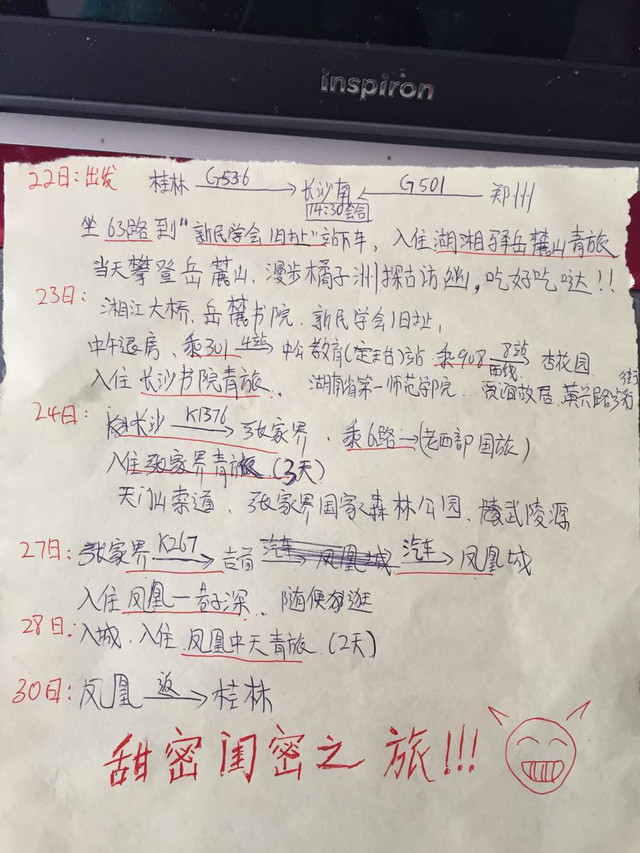 inspiron
22日：出发 桂林 G536 长沙南 G501 郑州
14:30会合
坐63路到"新民学会旧址"站下车，入住湖湘驿岳麓山青旅
当天攀登岳麓山，漫步橘子洲探古访幽，吃好吃哒!!
23日：湘江大桥、岳麓书院、新民学会旧址，
中午退房、乘301 4站 中公教育(定王台)站 乘908 8站 杏花园
西线
入住长沙书院青旅、湖南省第一师范学院、贾谊故居、黄兴路步行街
24日：长沙 K1376 张家界、乘6路(老西部国旅)
入住张家界青旅(3天)
天门山索道、张家界国家森林公园、武陵源
27日：张家界 K267 吉首 汽车 凤凰城 汽车 凤凰城
入住凤凰一巷子深、随便逛逛
28日：入城、入住凤凰中天青旅(2天)
30日：凤凰 返 桂林
甜密闺密之旅!!!